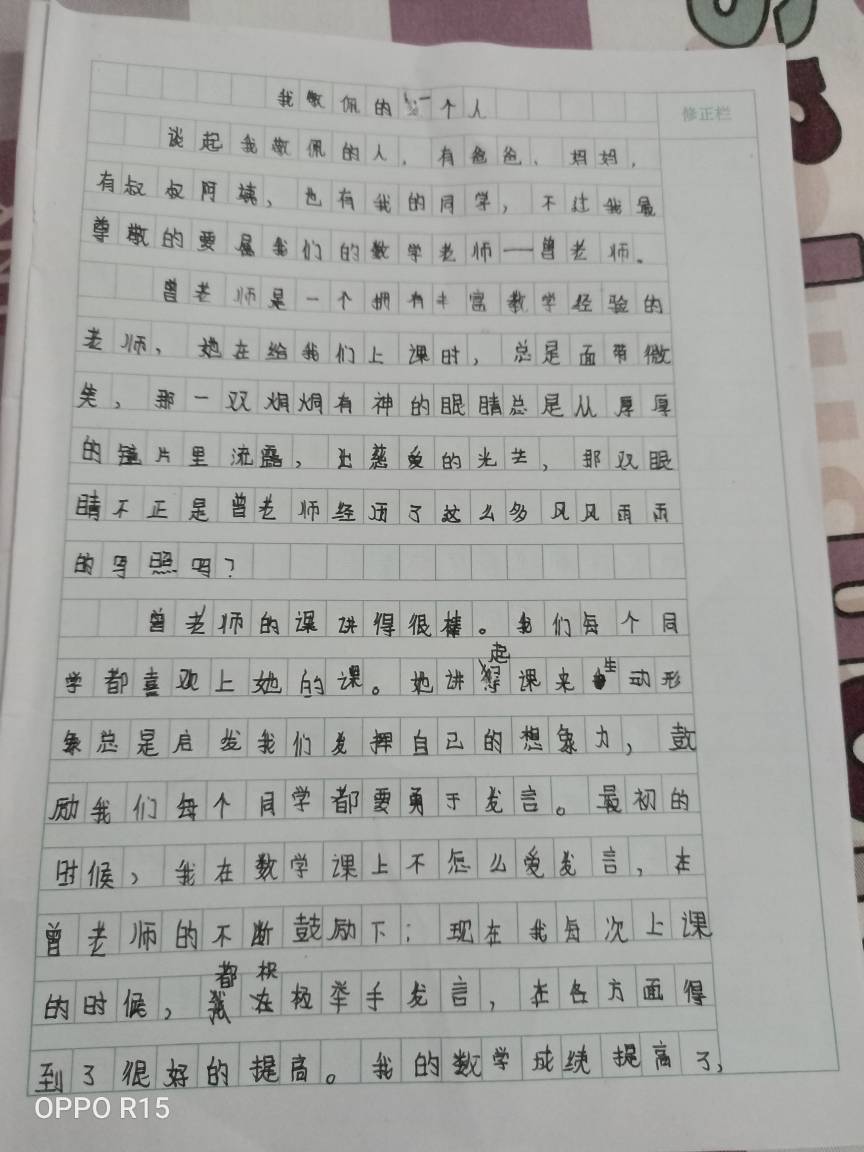 我敬佩的一个人
修正栏
谈起我敬佩的人，有爸爸、妈妈，
有叔叔阿姨，也有我的同学，不过我最
尊敬的要属我们的数学老师——曾老师。
曾老师是一个拥有丰富教学经验的
老师，她在给我们上课时，总是面带微
笑，那一双炯炯有神的眼睛总是从厚厚
的镜片里流露，出慈爱的光芒，那双眼
睛不正是曾老师经历了这么多风风雨雨
的写照吗？
曾老师的课讲得很棒。我们每个同
学都喜欢上她的课。她讲起课来生动形
象总是启发我们发挥自己的想象力，鼓
励我们每个同学都要勇于发言。最初的
时候，我在数学课上不怎么爱发言，在
曾老师的不断鼓励下；现在我每次上课
的时候，都积极举手发言，在各方面得
到了很好的提高。我的数学成绩提高了，
OPPO R15